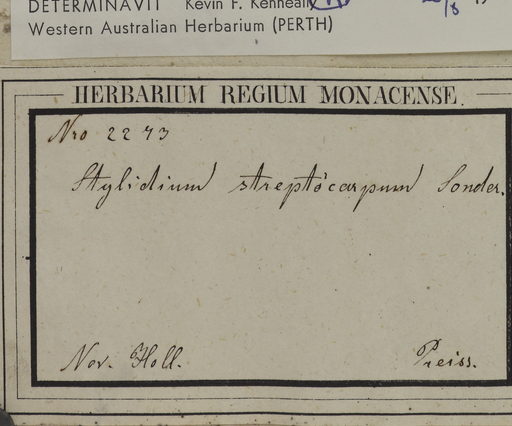 DETERMINAVIT Kevin F. Kenneally
Western Australian Herbarium (PERTH)
HERBARIUM REGIUM MONACENSE.
Nro 2273
Stylidium streptocarpum Sonder.
Nov. Holl. Preiss.